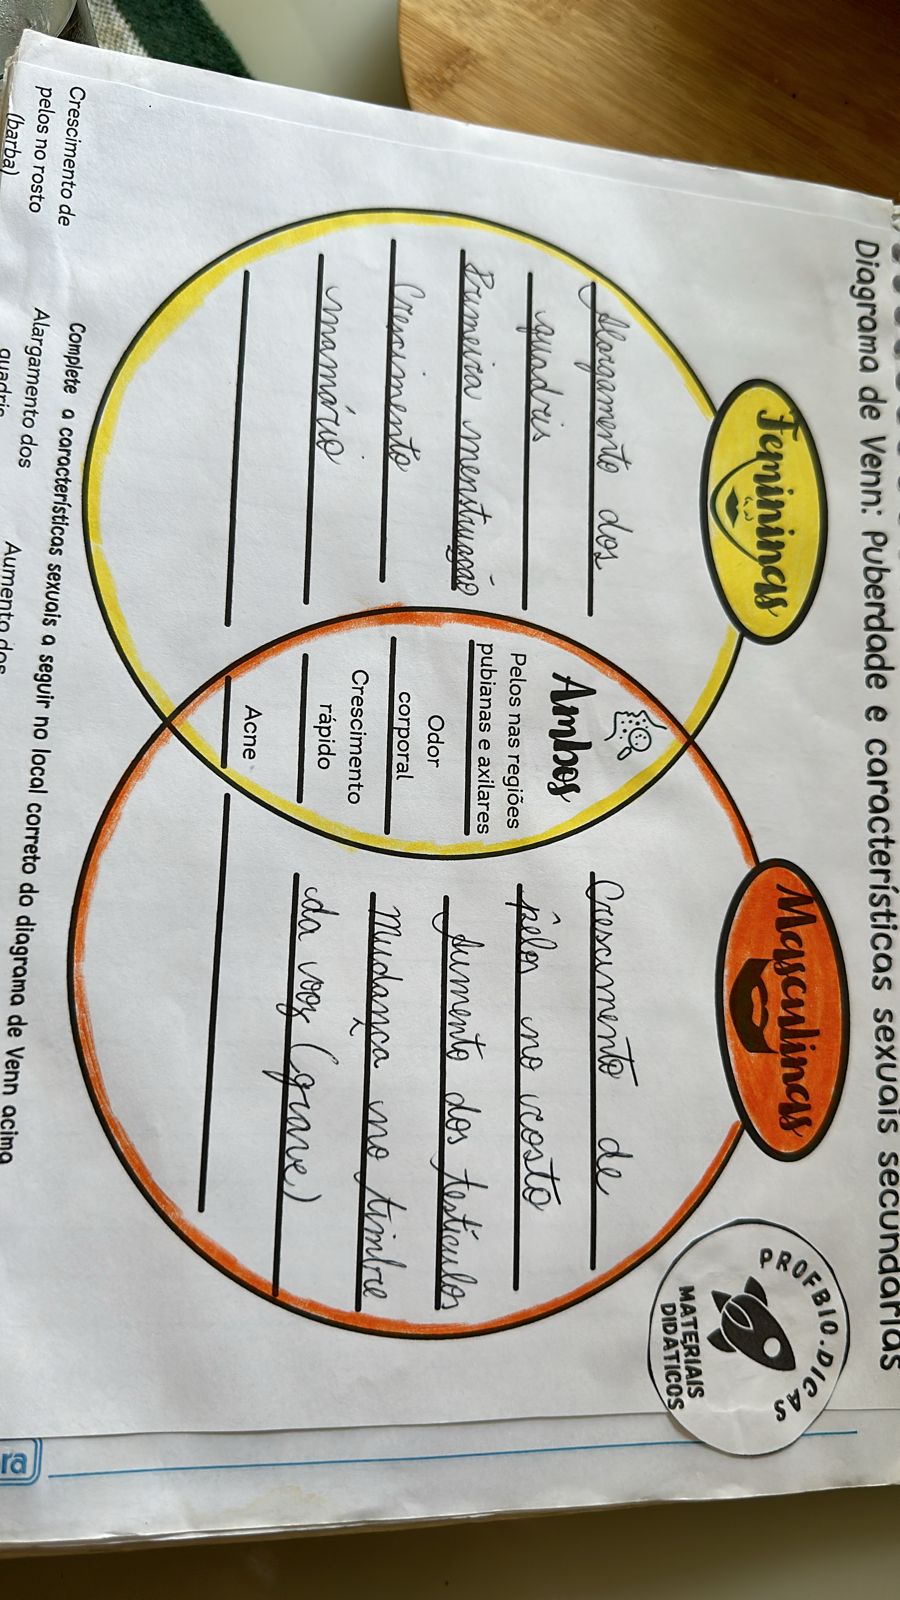 Diagrama de Venn: Puberdade e características sexuais secundárias
Femininas
Alargamento dos
quadris
Primeira menstruação
Crescimento
mamário
Ambos
Pelos nas regiões
pubianas e axilares
Odor
corporal
Crescimento
rápido
Acne
Masculinas
Crescimento de
pêlos no rosto
Aumento dos testículos
Mudança no timbre
da voz (grave)
PROFBIO.DICAS
MATERIAIS
DIDÁTICOS
Complete a características sexuais a seguir no local correto do diagrama de Venn acima
Crescimento de
pelos no rosto
(barba)
Alargamento dos
quadris
Aumento dos
ra